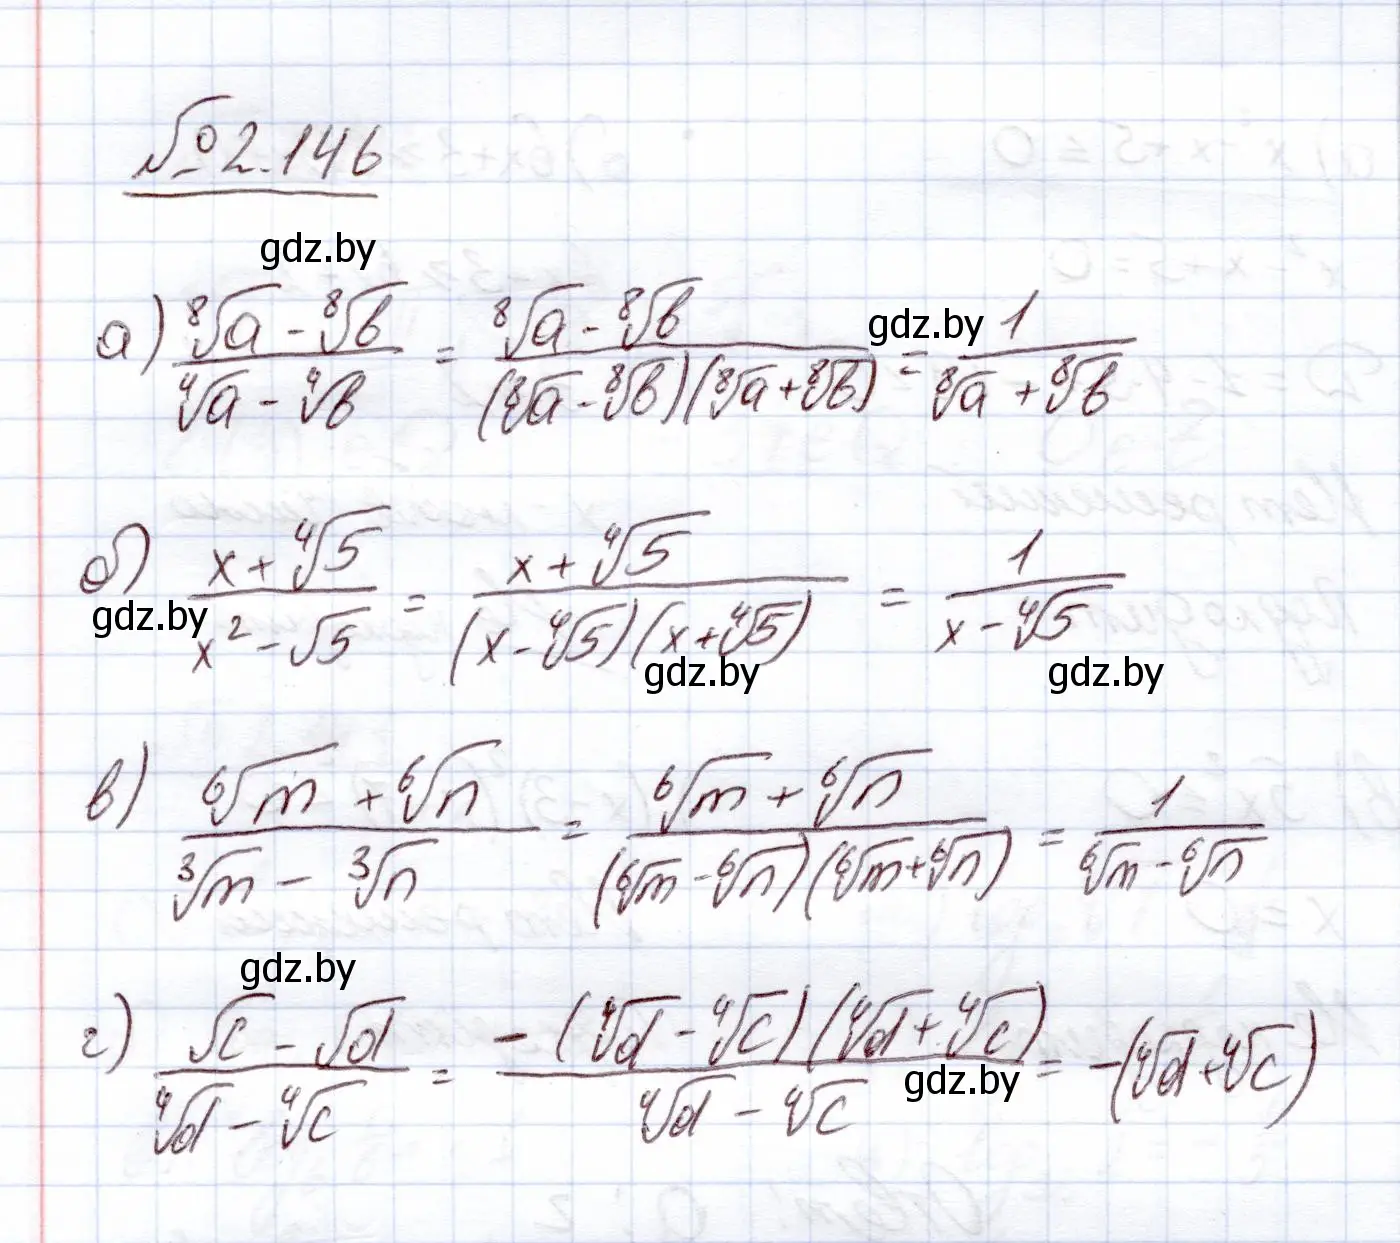 № 2.146
gdz.by
а) (⁸√a - ⁸√b)/(⁴√a - ⁴√b) = (⁸√a - ⁸√b)/((⁸√a - ⁸√b)(⁸√a + ⁸√b)) = 1/(⁸√a + ⁸√b)
gdz.by
б) (x + ⁴√5)/(x² - √5) = (x + ⁴√5)/((x - ⁴√5)(x + ⁴√5)) = 1/(x - ⁴√5)
gdz.by
gdz.by
gdz.by
в) (⁶√m + ⁶√n)/(³√m - ³√n) = (⁶√m + ⁶√n)/((⁶√m - ⁶√n)(⁶√m + ⁶√n)) = 1/(⁶√m - ⁶√n)
gdz.by
г) (√c - √d)/(⁴√d - ⁴√c) = -(⁴√d - ⁴√c)(⁴√d + ⁴√c)/(⁴√d - ⁴√c) = -(⁴√d + ⁴√c)
gdz.by